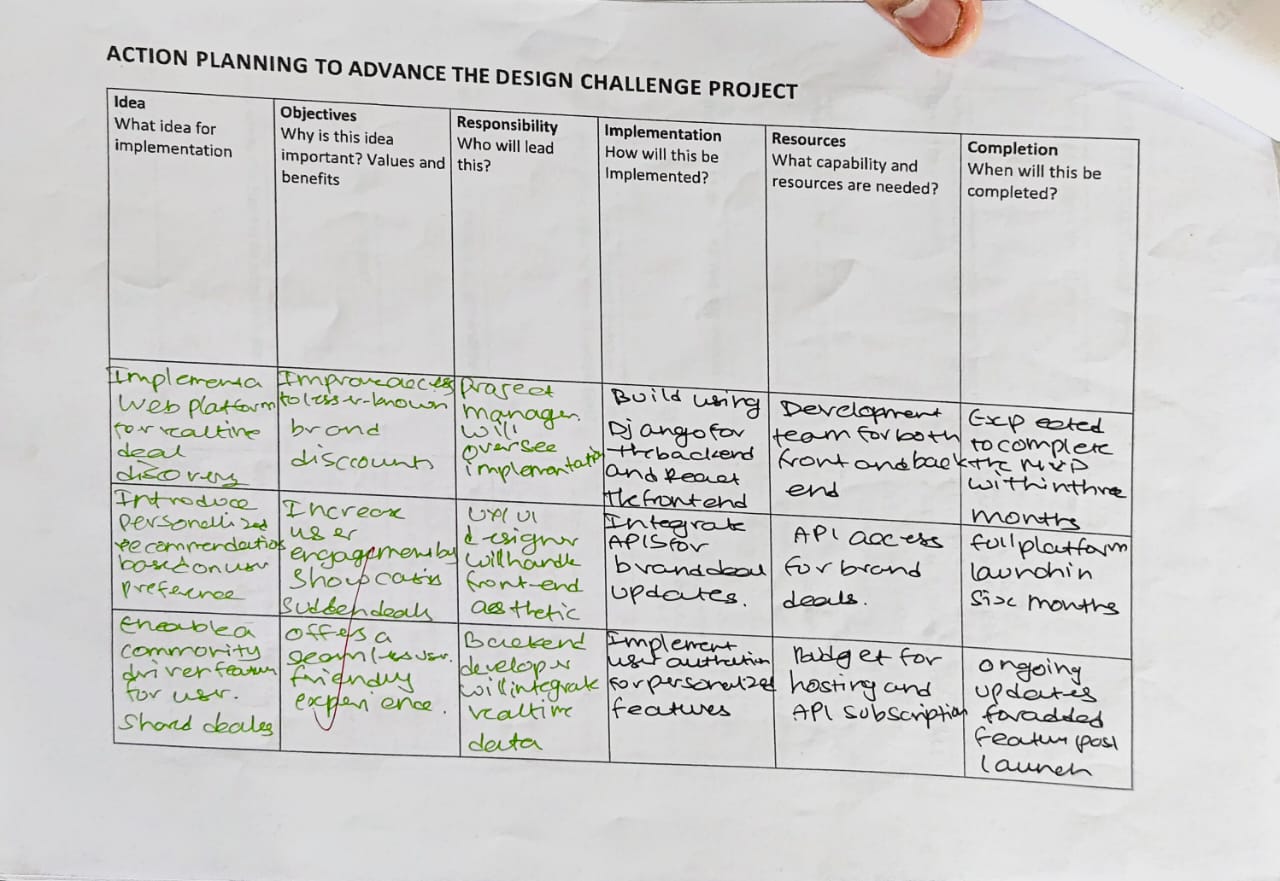 ACTION PLANNING TO ADVANCE THE DESIGN CHALLENGE PROJECT
Idea
What idea for
implementation
Objectives
Why is this idea
important? Values and
benefits
Responsibility
Who will lead
this?
Implementation
How will this be
Implemented?
Resources
What capability and
resources are needed?
Completion
When will this be
completed?
Implement a
web platform
for realtime
deal
discovery
Improve access
to lesser-known
brand
discounts
project
manager
will
oversee
implementation
Build using
Django for
the backend
and React
the frontend
Development
team for both
front and back
end
Expected
to complete
the MVP
within three
months
Introduce
personalized
recommendations
based on user
preference
Increase
user
engagement by
showcasing
sudden deals
UX/UI
designer
will handle
front-end
aesthetic
Integrate
APIs for
brand deal
updates.
API access
for brand
deals.
full platform
launch in
six months
enable a
commonity
driver feature
for user.
shared deales
offers a
seamless user.
friendly
experience.
Backend
developer
will integrate
realtime
data
Implement
user
for personalized
features
Budget for
hosting and
API subscription
ongoing
updates
for added
feature post
launch